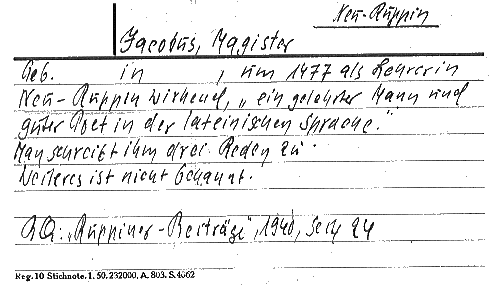 Neu-Ruppin
Jacobus, Magister
Geb. in , um 1477 als Lehrer in
Neu-Ruppin wirkend, „ein gelehrter Mann und
guter Poet in der lateinischen Sprache."
Man schreibt ihm drei Reden zu.
Weiteres ist nicht bekannt.
QQ: „Ruppiner-Beiträge", 1940, Seite 24
Reg. 10 Stichnote. 1. 50. 232000, A. 803. S. 4062